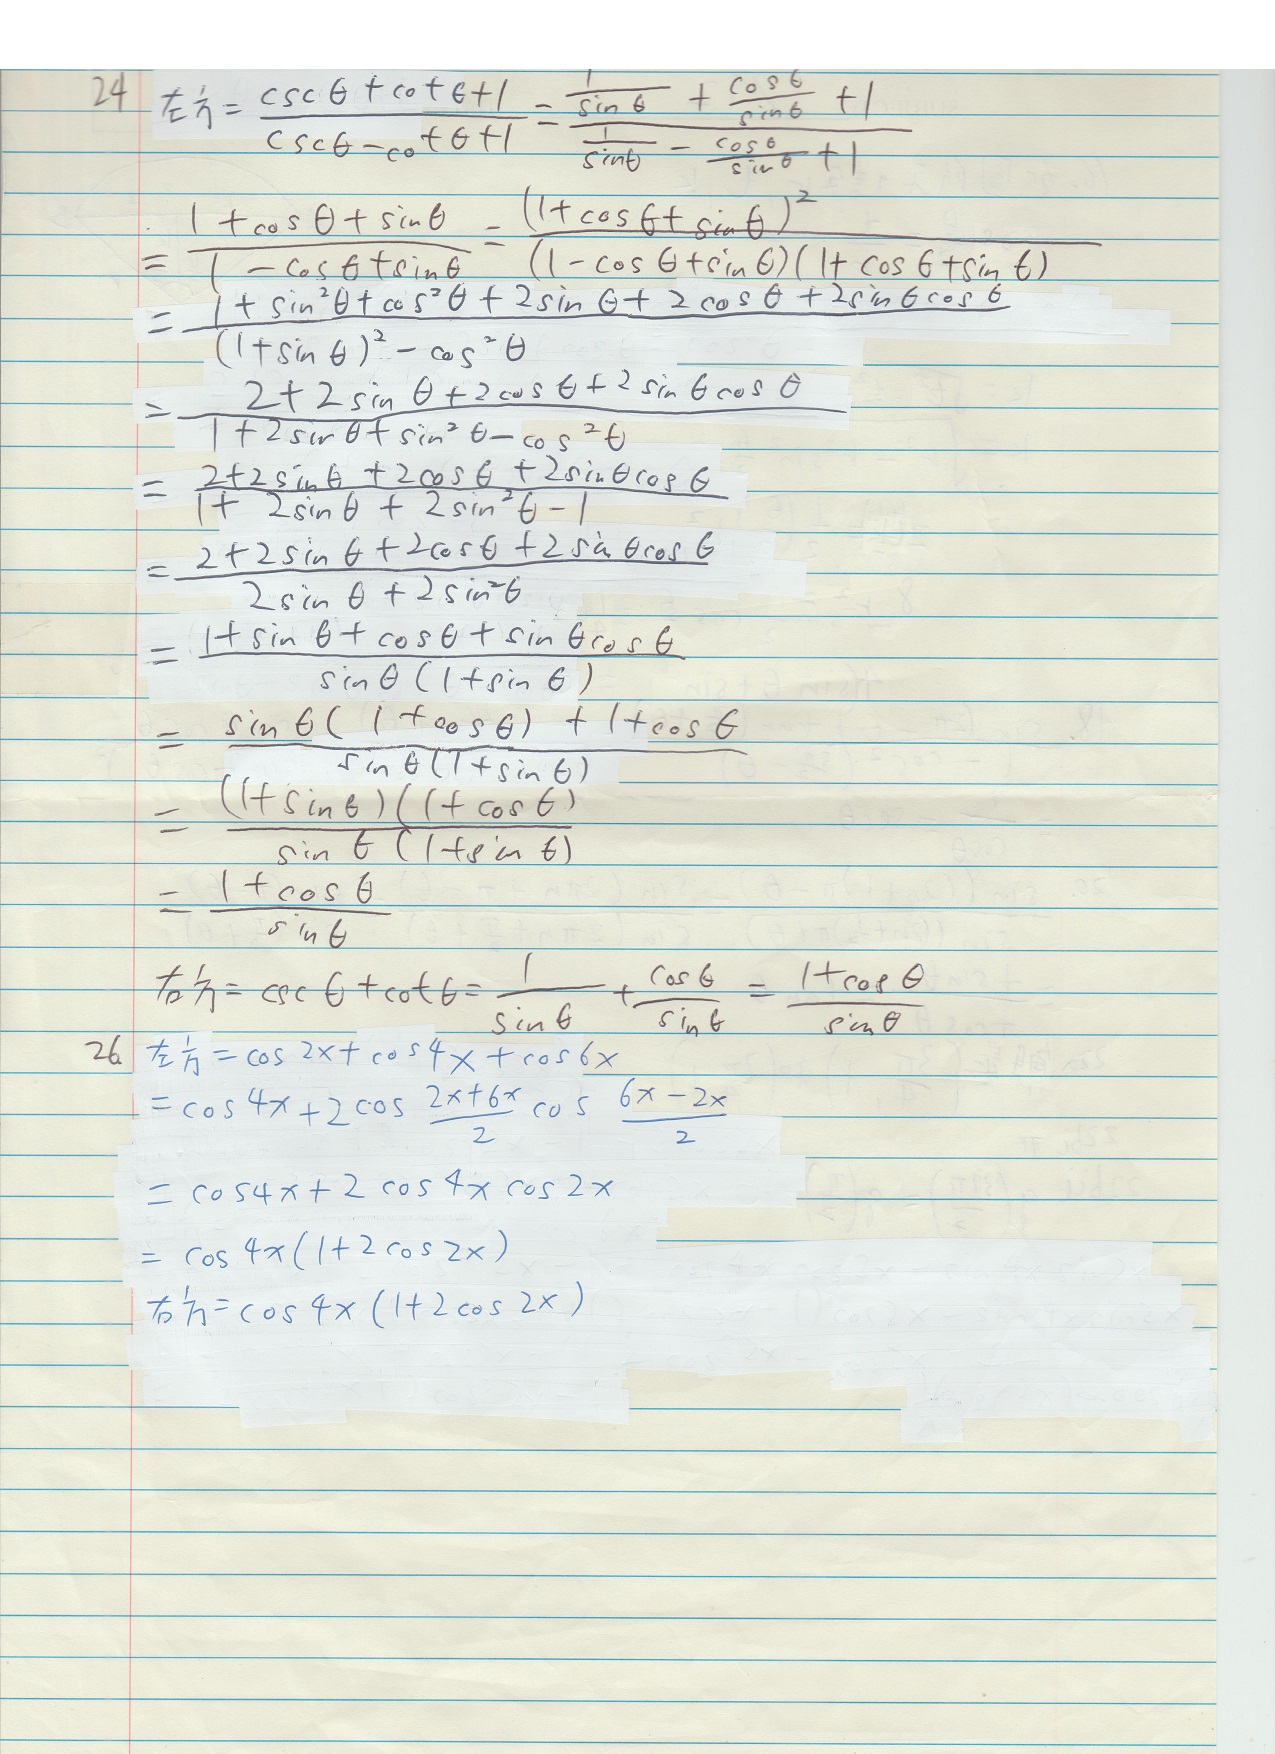 24 左方 = (cscθ+cotθ+1)/(cscθ-cotθ+1) = (1/sinθ + cosθ/sinθ + 1)/(1/sinθ - cosθ/sinθ + 1)
= (1+cosθ+sinθ)/(1-cosθ+sinθ) = (1+cosθ+sinθ)²/((1-cosθ+sinθ)(1+cosθ+sinθ))
= (1+sin²θ+cos²θ+2sinθ+2cosθ+2sinθcosθ)/((1+sinθ)²-cos²θ)
= (2+2sinθ+2cosθ+2sinθcosθ)/(1+2sinθ+sin²θ-cos²θ)
= (2+2sinθ+2cosθ+2sinθcosθ)/(1+2sinθ+2sin²θ-1)
= (2+2sinθ+2cosθ+2sinθcosθ)/(2sinθ+2sin²θ)
= (1+sinθ+cosθ+sinθcosθ)/(sinθ(1+sinθ))
= (sinθ(1+cosθ)+1+cosθ)/(sinθ(1+sinθ))
= ((1+sinθ)(1+cosθ))/(sinθ(1+sinθ))
= (1+cosθ)/sinθ
右方 = cscθ+cotθ = 1/sinθ + cosθ/sinθ = (1+cosθ)/sinθ
26. 左方 = cos2x+cos4x+cos6x
= cos4x+2cos (2x+6x)/2 cos (6x-2x)/2
= cos4x+2cos4xcos2x
= cos4x(1+2cos2x)
右方 = cos4x(1+2cos2x)